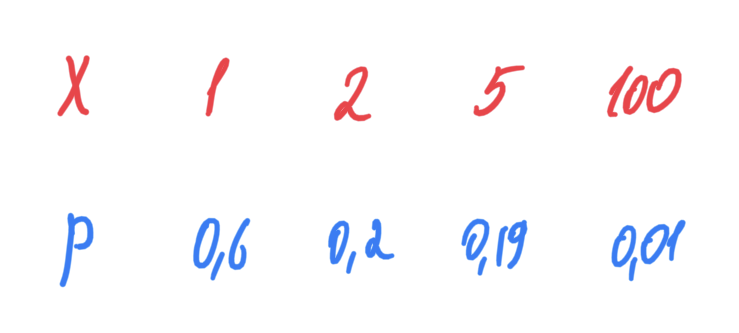 X 1 2 5 100
P 0,6 0,2 0,19 0,01